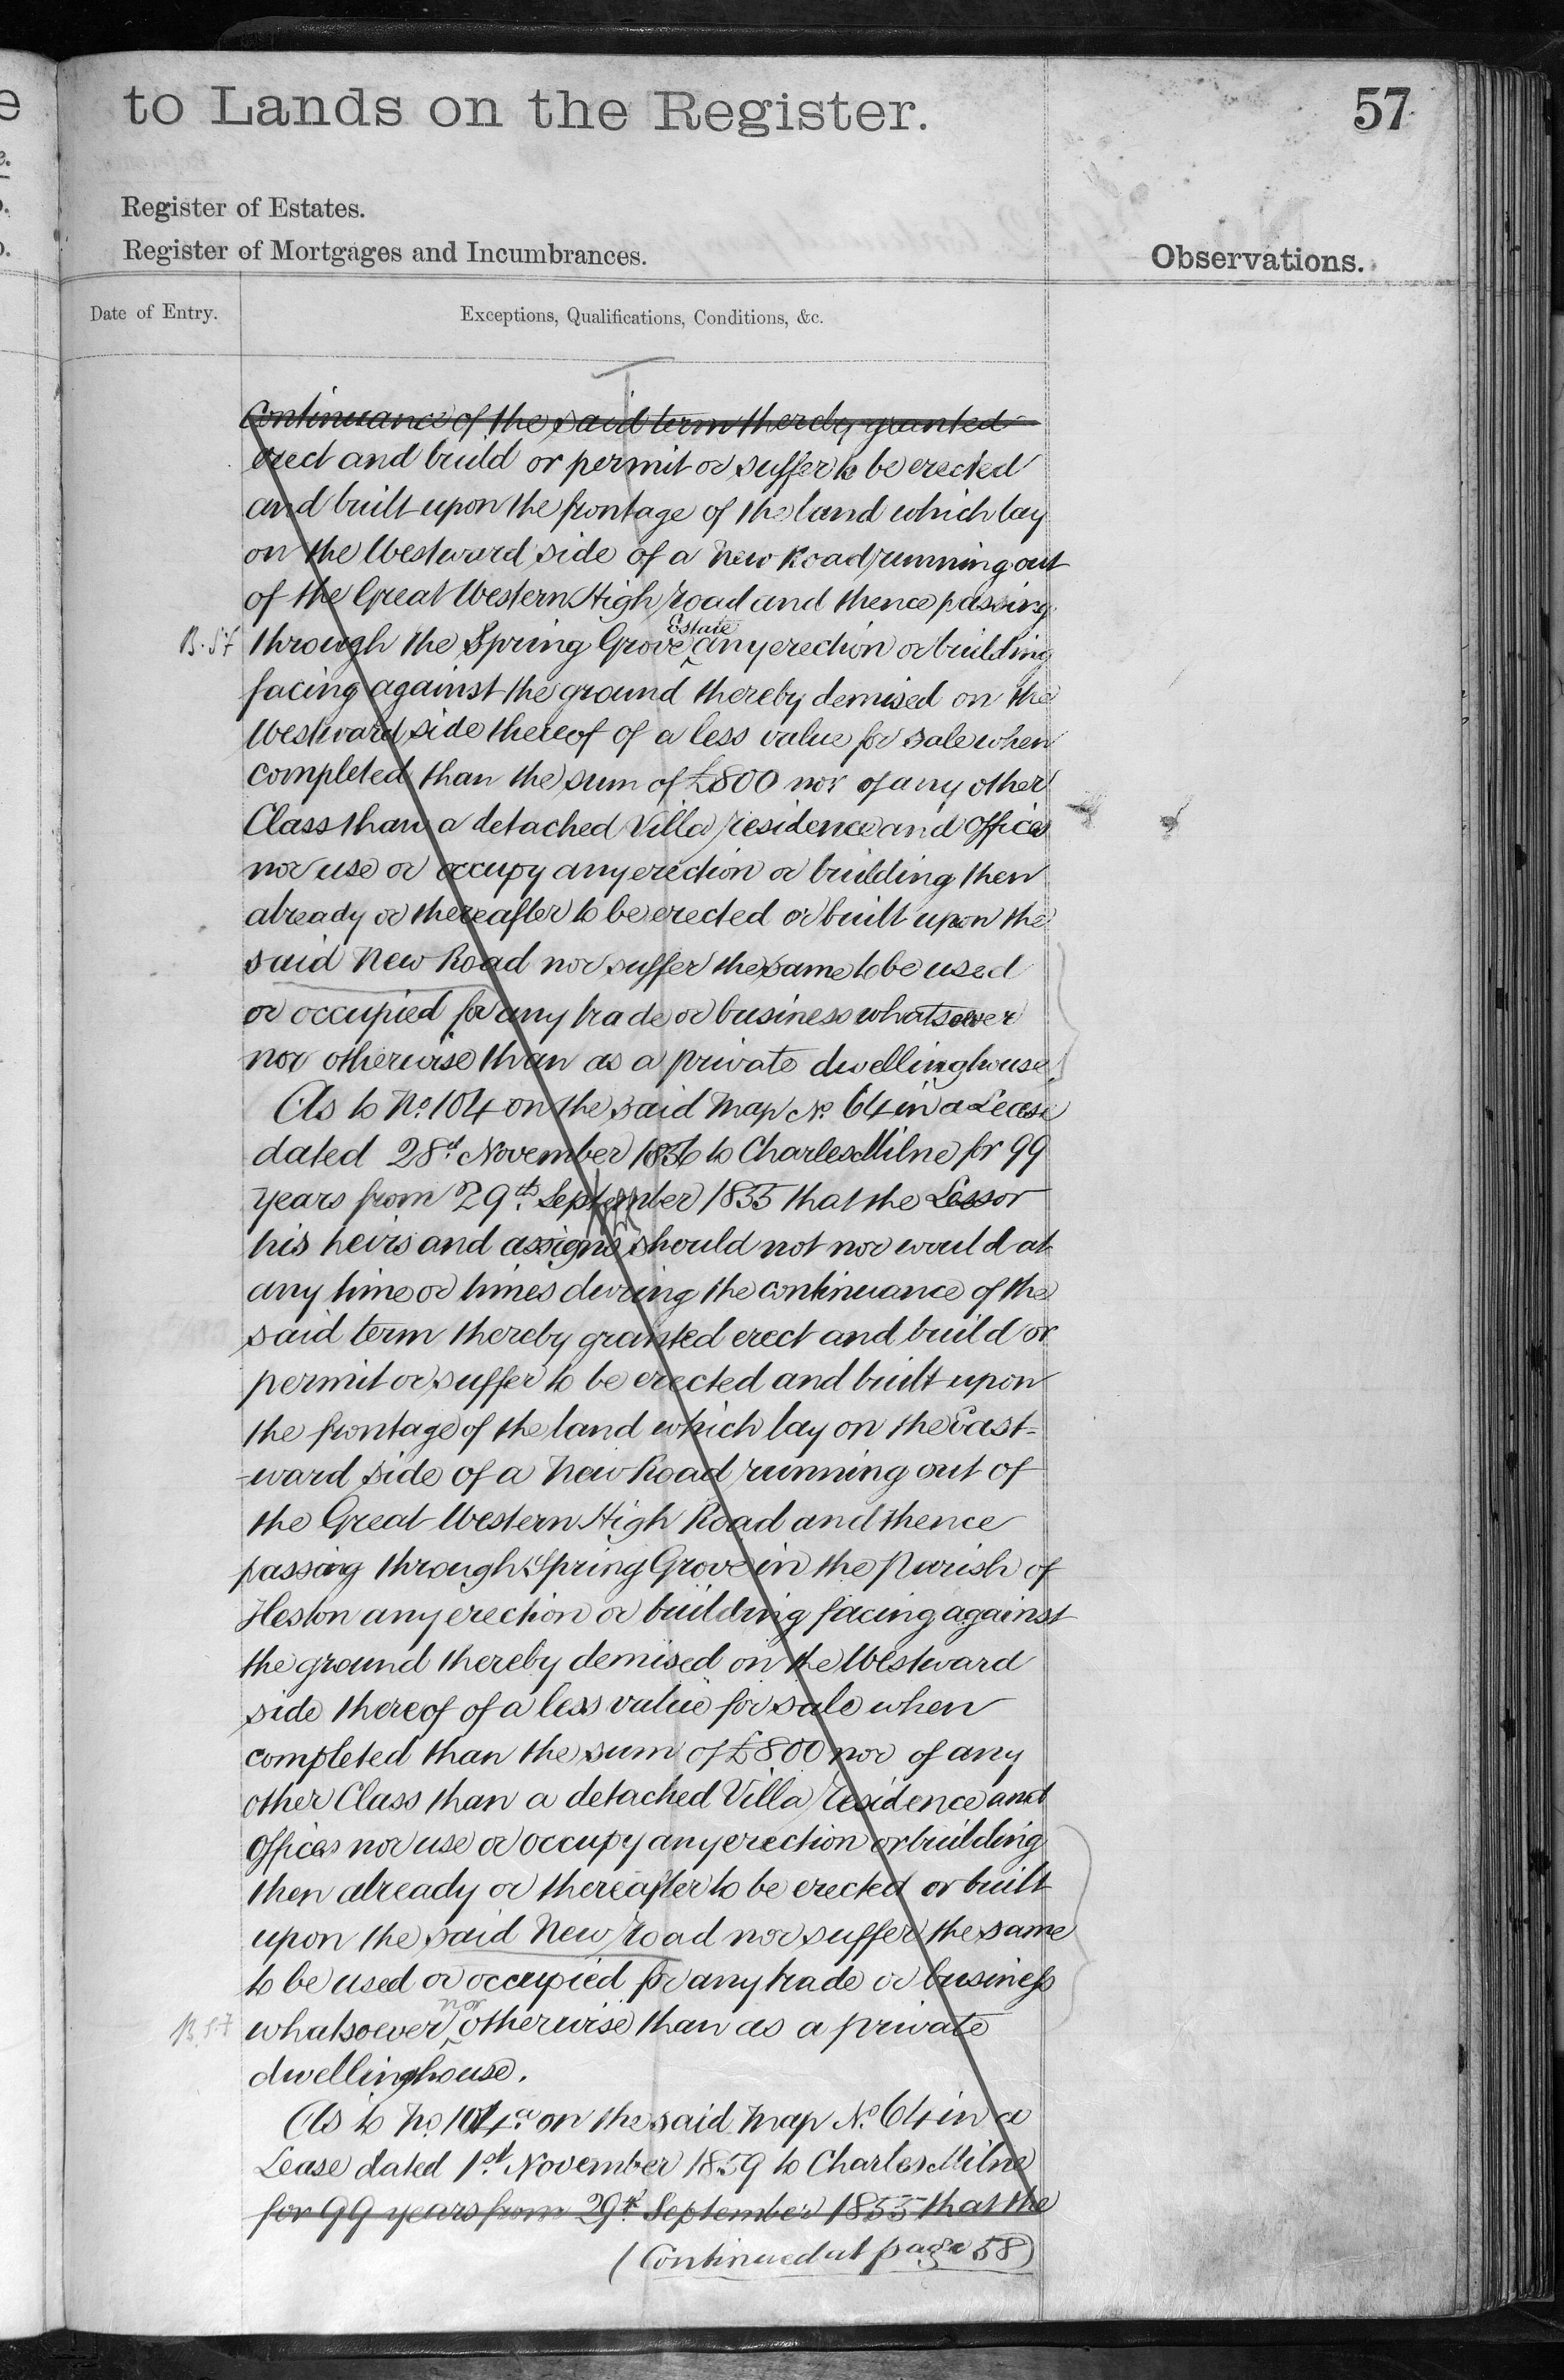 to Lands on the Register.
57
Register of Estates.
Register of Mortgages and Incumbrances.
Observations.
Date of Entry.
Exceptions, Qualifications, Conditions, &c.
Continuance of the said term thereby granted
erect and build or permit or suffer to be erected
and built upon the frontage of the land which lay
on the Westward side of a New Road running out
of the Great Western High road and thence passing
through the Spring Grove Estate any erection or building
facing against the ground thereby demised on the
Westward side thereof of a less value for sale when
completed than the sum of £800 nor of any other
Class than a detached Villa residence and Offices
nor use or occupy any erection or building then
already or thereafter to be erected or built upon the
said New Road nor suffer the same to be used
or occupied for any trade or business whatsoever
nor otherwise than as a private dwellinghouse.
As to No. 104 on the said Map No. 64 in a Lease
dated 28th November 1856 to Charles Milne for 99
years from 29th September 1855 that the Lessor
his heirs and assigns should not nor would at
any time or times during the continuance of the
said term thereby granted erect and build or
permit or suffer to be erected and built upon
the frontage of the land which lay on the East-
-ward side of a New Road running out of
the Great Western High Road and thence
passing through Spring Grove in the Parish of
Heston any erection or building facing against
the ground thereby demised on the Westward
side thereof of a less value for sale when
completed than the sum of £800 nor of any
other Class than a detached Villa residence and
Offices nor use or occupy any erection or building
then already or thereafter to be erected or built
upon the said New road nor suffer the same
to be used or occupied for any trade or business
whatsoever nor otherwise than as a private
dwellinghouse.
As to No. 104a on the said Map No. 64 in a
Lease dated 1st November 1859 to Charles Milne
for 99 years from 29th September 1855 that the
(Continued at page 58)